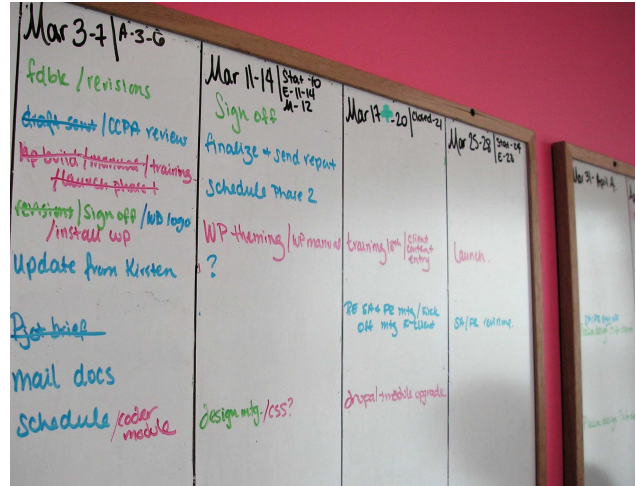 Mar 3-7 | A-3-6
fdbk / revisions
draft sent / CCPA review
wp build / manual / training
/ launch phase 1
revisions / Sign off / WB logo
/ install wp
Update from Kirsten
Pjct brief
mail docs
Schedule / coder
module
Mar 11-14 | Stat-10
E-11-14
M-12
Sign off
finalize + send report
schedule Phase 2
WP theming / WP manual
?
design mtg. / CSS?
Mar 17 -20 | Closed-21
training 18th / client
content
entry
mtg / Kick
off mtg
drupal + module upgrade
Mar 25-28 | Stat-24
E-28
Launch.
SA/PE revisions.
Mar 31-April 4